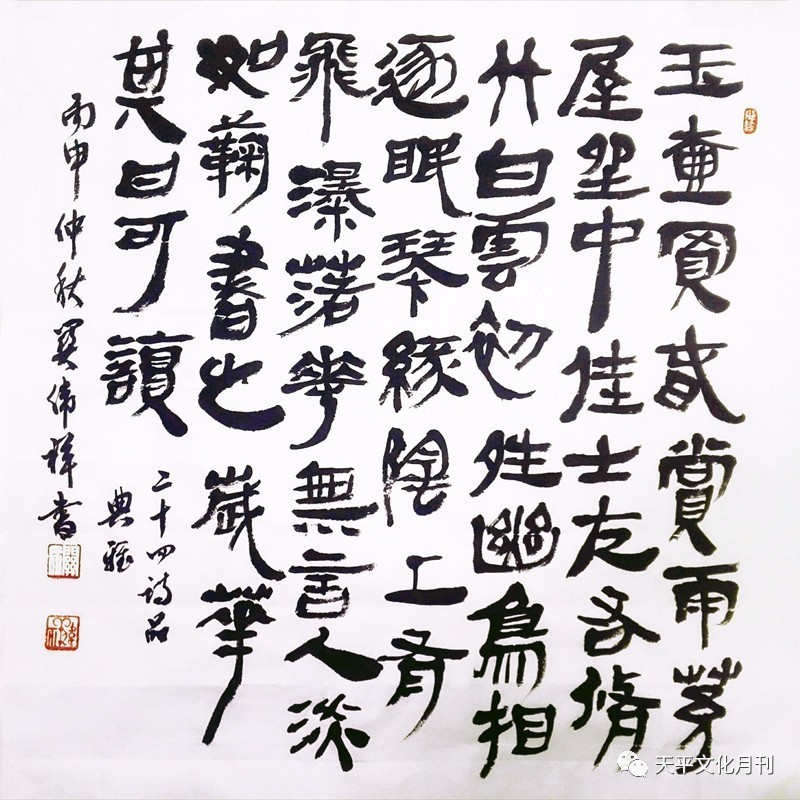 玉壺買春賞雨茅
屋坐中佳士左右脩
竹白雲初姓幽鳥相
逐眠琴綠陰上有
飛瀑落華無言人淡
如蘜書之歲華
其曰可讀
二十四詩品
典雅
丙申仲秋偉祥書
天平文化月刊